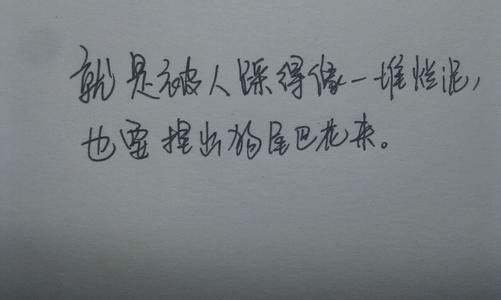 就是被人踩得像一堆烂泥，
也要捏出狗尾巴花来。